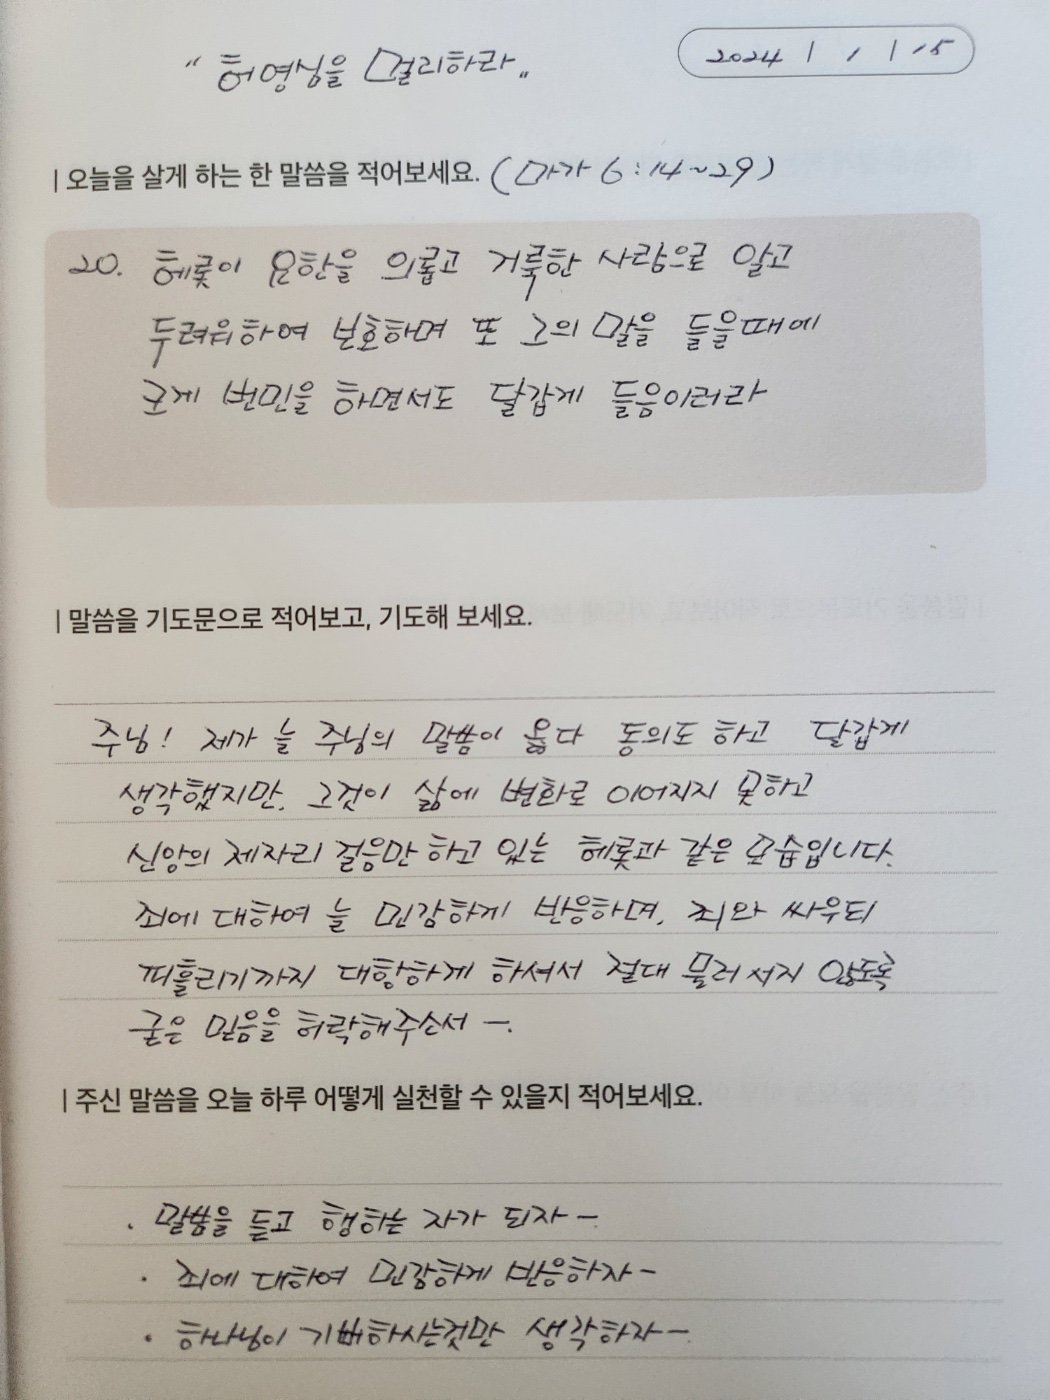 "허영심을 멀리하라"
2024 / 1 / 15
| 오늘을 살게 하는 한 말씀을 적어보세요. (마가 6:14~29)
20. 헤롯이 요한을 의롭고 거룩한 사람으로 알고
두려워하여 보호하며 또 그의 말을 들을때에
크게 번민을 하면서도 달갑게 들음이러라
| 말씀을 기도문으로 적어보고, 기도해 보세요.
주님! 제가 늘 주님의 말씀이 옳다 동의도 하고 달갑게
생각했지만, 그것이 삶에 변화로 이어지지 못하고
신앙의 제자리 걸음만 하고 있는 헤롯과 같은 모습입니다.
죄에 대하여 늘 민감하게 반응하며, 죄와 싸우되
피흘리기까지 대항하게 하셔서 절대 물러서지 않도록
굳은 믿음을 허락해주소서 ー.
| 주신 말씀을 오늘 하루 어떻게 실천할 수 있을지 적어보세요.
· 말씀을 듣고 행하는 자가 되자 ー
· 죄에 대하여 민감하게 반응하자 ー
· 하나님이 기뻐하시는것만 생각하자 ー